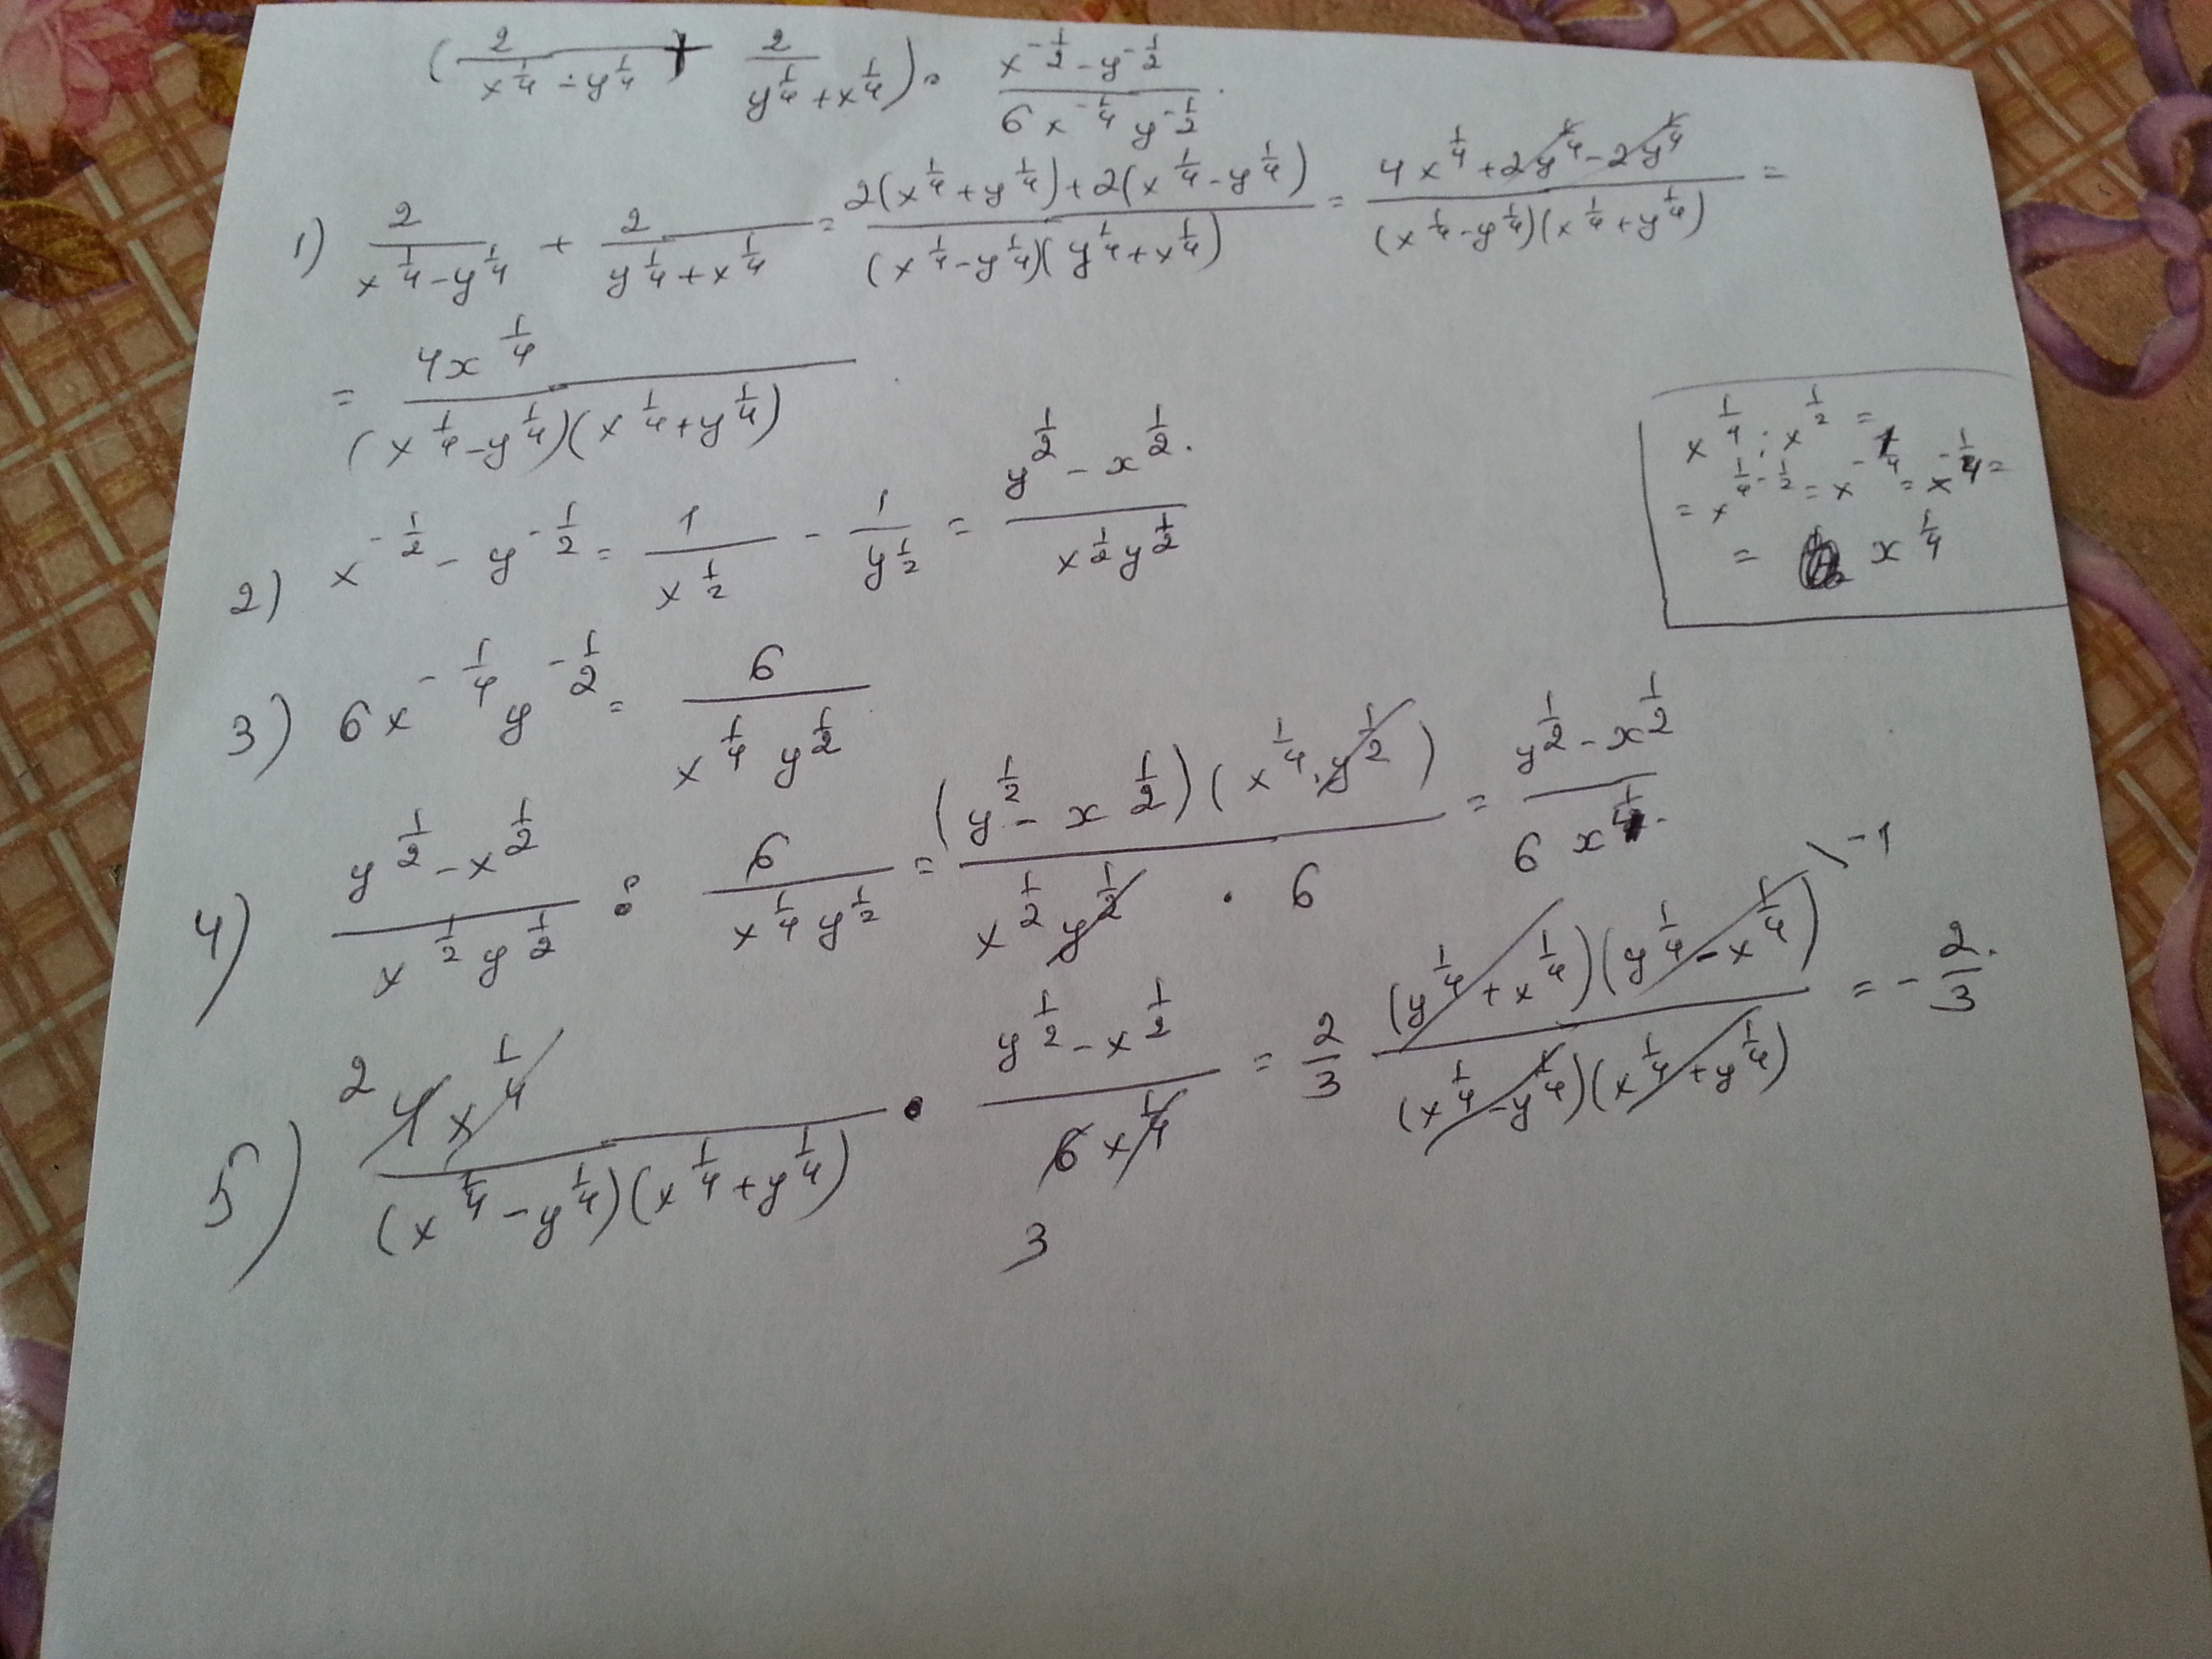 (2/(x^{1/4} - y^{1/4}) + 2/(y^{1/4} + x^{1/4})) · (x^{-1/2} - y^{-1/2})/(6x^{-1/4} y^{-1/2}).
1) 2/(x^{1/4} - y^{1/4}) + 2/(y^{1/4} + x^{1/4}) = (2(x^{1/4} + y^{1/4}) + 2(x^{1/4} - y^{1/4}))/((x^{1/4} - y^{1/4})(y^{1/4} + x^{1/4})) = (4x^{1/4} + 2y^{1/4} - 2y^{1/4})/((x^{1/4} - y^{1/4})(x^{1/4} + y^{1/4})) =
= 4x^{1/4}/((x^{1/4} - y^{1/4})(x^{1/4} + y^{1/4}))
2) x^{-1/2} - y^{-1/2} = 1/x^{1/2} - 1/y^{1/2} = (y^{1/2} - x^{1/2})/(x^{1/2} y^{1/2})
x^{1/4} : x^{1/2} =
= x^{1/4 - 1/2} = x^{-1/4} = x^{-1/4} =
= x^{1/4}
3) 6x^{-1/4} y^{-1/2} = 6/(x^{1/4} y^{1/2})
4) (y^{1/2} - x^{1/2})/(x^{1/2} y^{1/2}) : 6/(x^{1/4} y^{1/2}) = ((y^{1/2} - x^{1/2})(x^{1/4} · y^{1/2}))/(x^{1/2} y^{1/2} · 6) = (y^{1/2} - x^{1/2})/(6x^{1/4}).
5) 2 4x^{1/4}/((x^{1/4} - y^{1/4})(x^{1/4} + y^{1/4})) · (y^{1/2} - x^{1/2})/(6x^{1/4}) 3 = 2/3 ((y^{1/4} + x^{1/4})(y^{1/4} - x^{1/4}))\-1/((x^{1/4} - y^{1/4})(x^{1/4} + y^{1/4})) = -2/3.